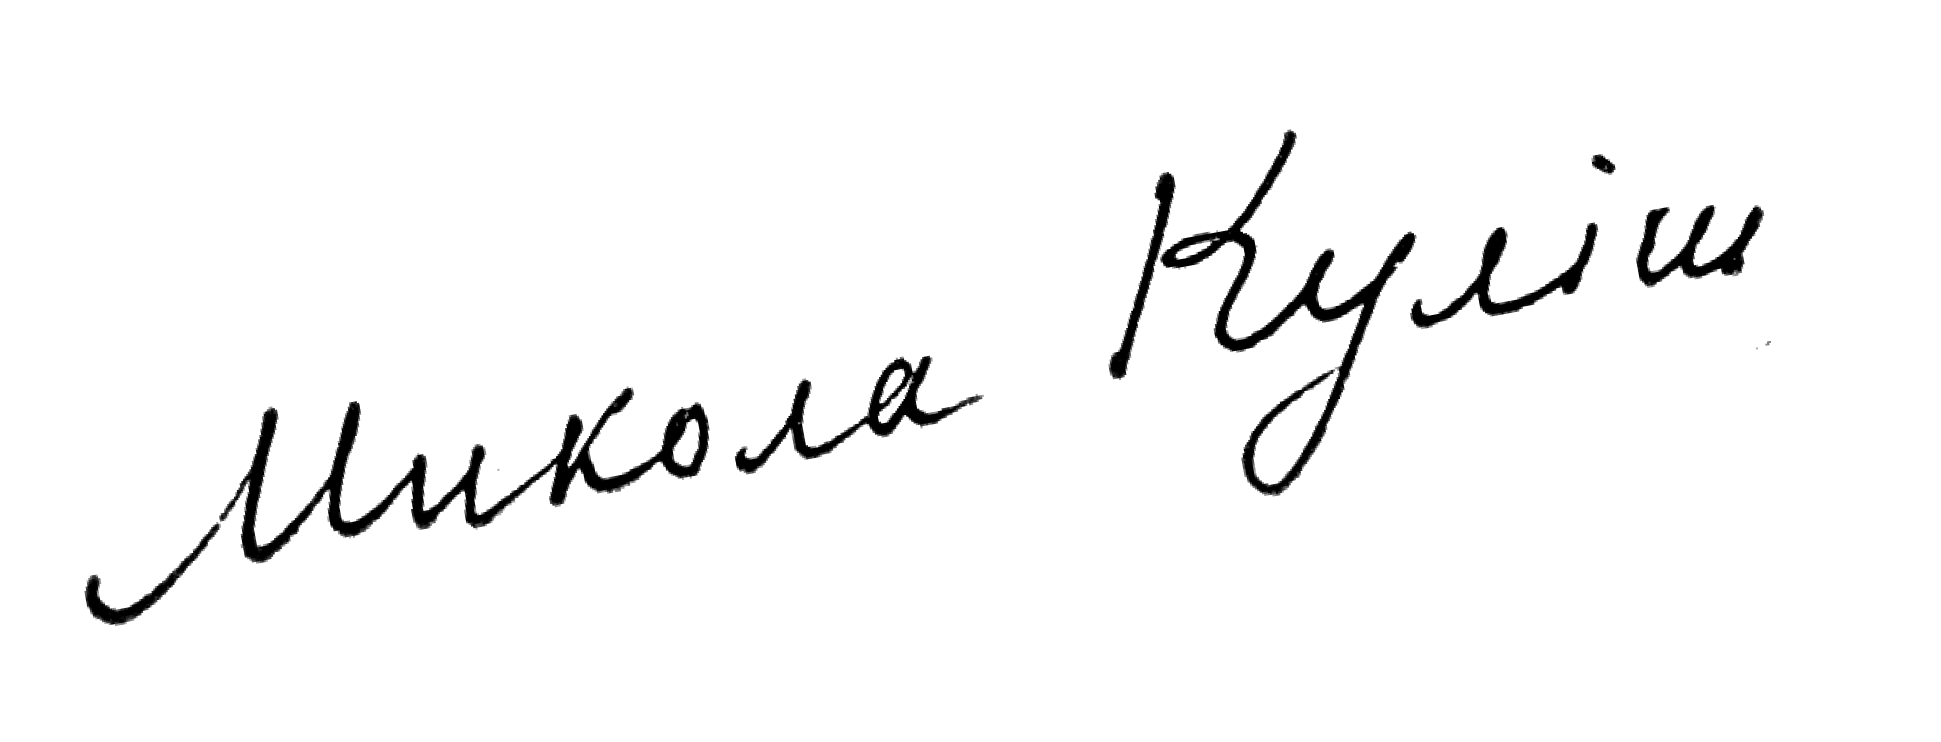 Микола Куліш